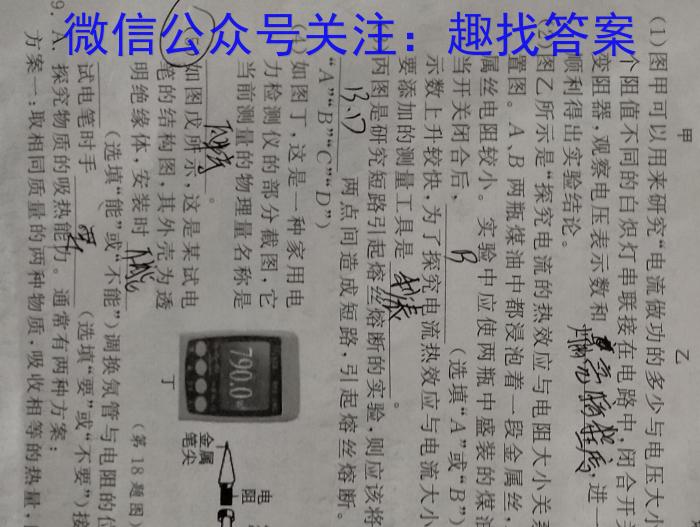 微信公众号关注：趣找答案
甲
乙
(1)图甲可以用来研究“电流做功的多少与电压大小
个阻值不同的白炽灯串联接在电路中，闭合开
变阻器，观察电压表示数和
，进一
顺利得出实验结论。
图乙所示是“探究电流的热效应与电阻大小关
置图。A、B两瓶煤油中都浸泡着一段金属丝
属丝电阻较小。实验中应使两瓶中盛装的煤油
当开关闭合后，B(选填“A”或“B”)
示数上升较快，为了探究电流热效应与电流大小
要添加的测量工具是
。
丙图是研究短路引起熔丝熔断的实验，则应该将
B、D两点间造成短路，引起熔丝熔断。
“A”“B”“C”“D”)
如图丁，这是一种家用电
力检测仪的部分截图，它
当前测量的物理量名称是
。
如图戊所示，这是某试电
笔的结构图，其外壳为透
明绝缘体，安装时不能
(选填“能”或“不能”)调换氖管与电阻的位
试电笔时手
(选填“要”或“不要”)接
790.0
丁
金属
笔尖
电
阻
(第18题图)
9. A. 探究物质的吸热能力。通常有两种方案：
方案一：取相同质量的两种物质，吸收相等的热量，